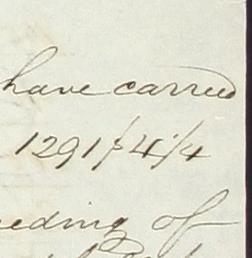 have carried
1291/4/4
eeding of